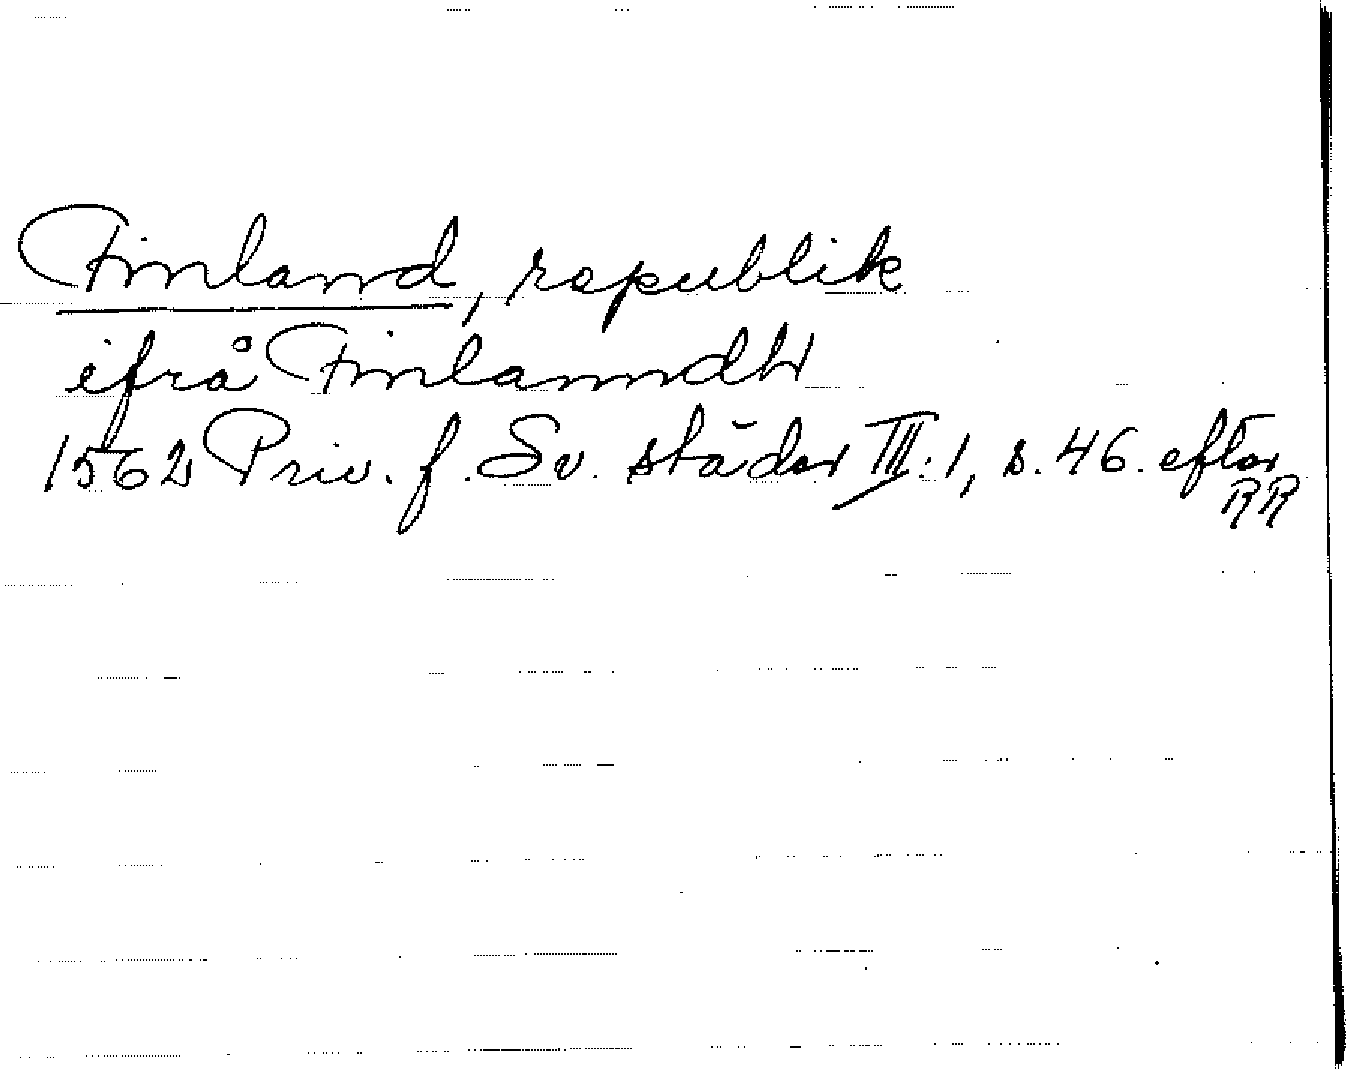 Finland, republik
ifrå Finlanndh
1562 Priv. f. Sv. städer III:1, s. 46. efter
RR